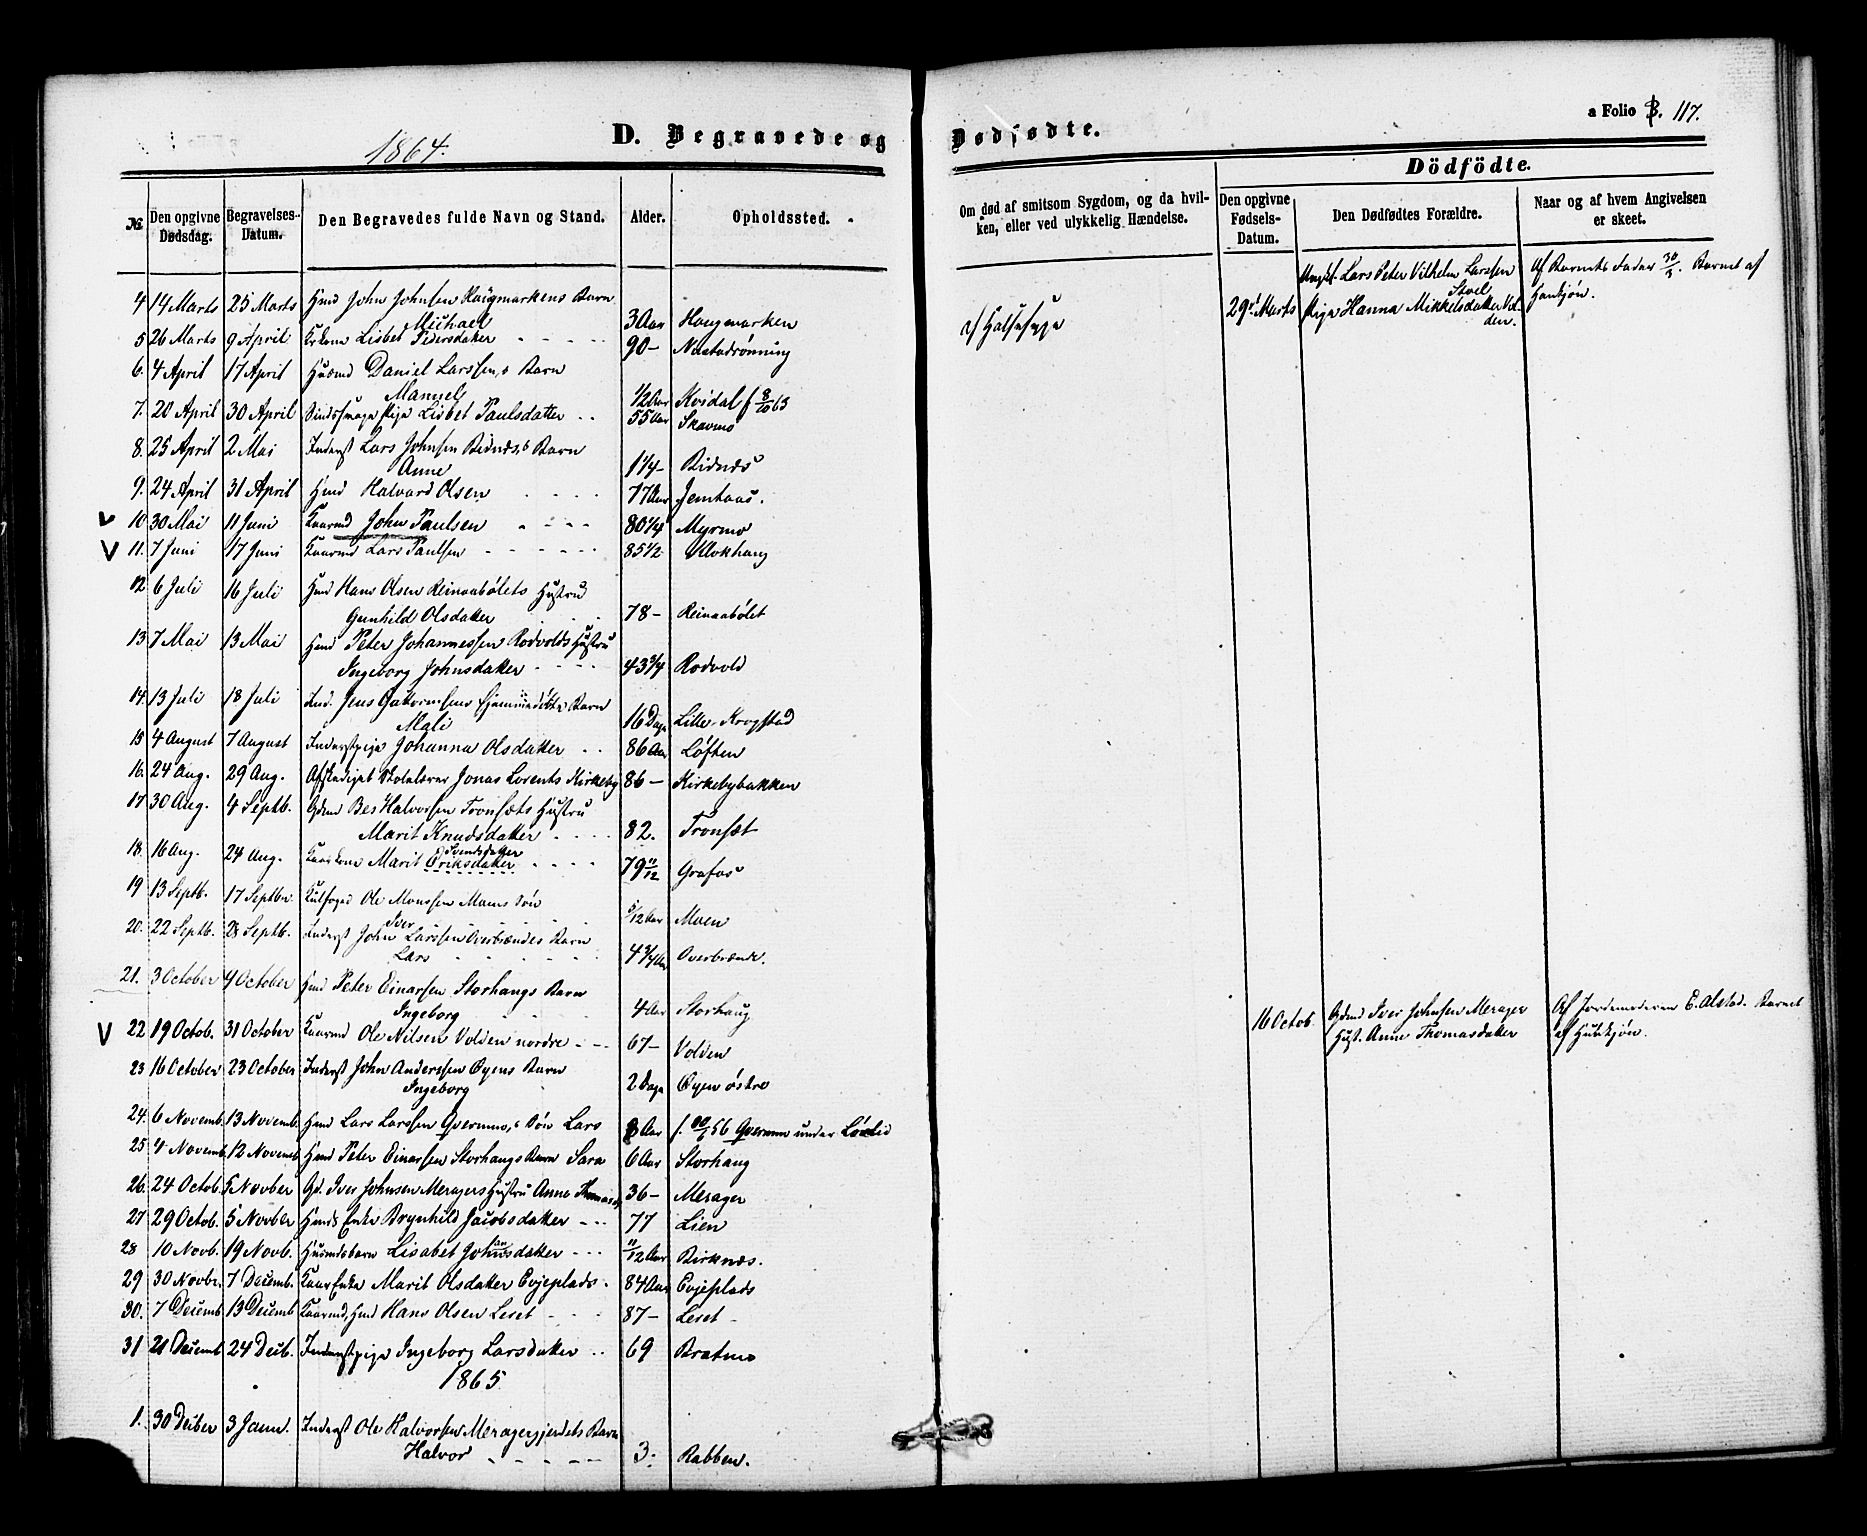 a Folio B. 117.
1864.
D. Begravede og Dødfødte.
Dödfödte.
№
Den opgivne Dødsdag.
Begravelses-Datum.
Den Begravedes fulde Navn og Stand.
Alder.
Opholdssted.
Om død af smitsom Sygdom, og da hvil-
ken, eller ved ulykkelig Hændelse.
Den opgivne Fødsels-Datum.
Den Dødfødtes Forældre.
Naar og af hvem Angivelsen er skeet.
Lars Peter Vilhelm Larssen Af Barnets Fader 30/3. Barnet af
29de Marts Pige Hanna Mikkelsdatter Hankjøn.
4 14 Marts 25 Marts Hmd John Johnsen Haugmarkens Barn
Michael 3 Aar Haugmarken af Halsesyge
5 26 Marts 9 April Lisbet Pedersdatter 90 - Nastadrønning
6. 4 April 17 April Husmd Daniel Larssens Barn
Manuel 1/2 Aar Kvidal f 8/10 63
7. 20 April 30 April Pige Lisbet Paulsdatter 55 Aar Skavmo
8. 25 April 2 Mai Inderst Lars Johnsen Bidnæs's Barn
Anne 1 1/4 - Bidnæs
9. 24 April 31 April Hmd Halvard Olsen 77 Aar Jemtaas.
V 10 30 Mai 11 Juni Kaarmd John Paulsen 80 1/4 Myrmo
V 11. 7 Juni 17 Juni Kaarmd Lars Paulsen 85 1/2 Klokhaug
12 6 Juli 16 Juli Hmd Hans Olsen Reinaabølets Hustru
Gunhild Olsdatter 78 - Reinaabølet
13. 7 Mai 13 Mai Hmd Peter Johannessen Rodvolds Hustru
Ingeborg Johnsdatter 43 3/4 Rodvold
14. 13 Juli 18 Juli Ind. Jens Guttormsens hjemmedøbte Barn
Mali 16 Dage Lille-Krogstad
15 4 August 7 August Inderstpige Johanna Olsdatter 86 Aar Løften
16. 24 Aug. 29 Aug. Afskediget Skolelærer Jonas Lorents Kirkeby 86 - Kirkebybakken
17 30 Aug. 4 Septb. Gdmd Bes Halvorsen Tronsæts Hustru
Marit Knudsdatter 82. Tronsæt
18. 16 Aug. 24 Aug. Kaarkone Marit Eriksdatter Svendsdatter 79 11/12 Grafos
19 13 Septb. 17 Septbr. Ole Monssen Moens Søn
Iver 5/12 Aar Moen
20. 22 Septb. 28 Septb. Inderst John Larssen Overbrændes Barn
Lars 4 3/4 Aar Overbrænde.
21. 3 October 4 October Hmd Peter Einarsen Storhaugs Barn
Ingeborg 4 Aar Storhaug
16 Octob. Gdmd Iver Johnsen Merager Af Jordemoderen E. Alstad. Barnet
Hust. Anne Thomasdatter af Hunkjøn.
V 22 19 Octob. 31 October Kaarmd Ole Nilsen Volden nordre 67 - Volden
23 16 October 23 October Inderst John Anderssen Øyens Barn
Ingeborg 2 Dage Øyen østre
24. 6 Novemb. 13 Novemb. Hmd Lars Larssen Qvernmo's Søn Lars 8 Aar f. 56 Qvernmo under Løxlid
25 4 Novemb. 12 Novemb. Hmd Peter Einarsen Storhaugs Barn Sara 6 Aar Storhaug
26. 24 Octob. 5 Novber Gd. Iver Johnsen Meragers Hustru Anne Thomasd. 36 - Merager
27 29 Octob. 5 Novber Hmds Enke Brynhild Jacobsdatter 77 Lien
28 10 Novb. 19 Novb. Husmdsbarn Lisabet Johnsdatter 11/12 Aar Birknæs.
29 30 Novbr. 7 Decemb. Kaar Enke Marit Olsdatter Evjeplads 84 Aar Evjeplads
30. 7 Decemb 13 Decemb Kaarmd, Hmd Hans Olsen Leret 87 - Leret
31 21 Decemb 24 Decb. Inderstpige Ingeborg Larsdatter 69 Bratmo
1865
1. 30 Decber 3 Janu. Inderst Ole Halvorsen Meragersgjerdets Barn
Halvor 3. Rabben.